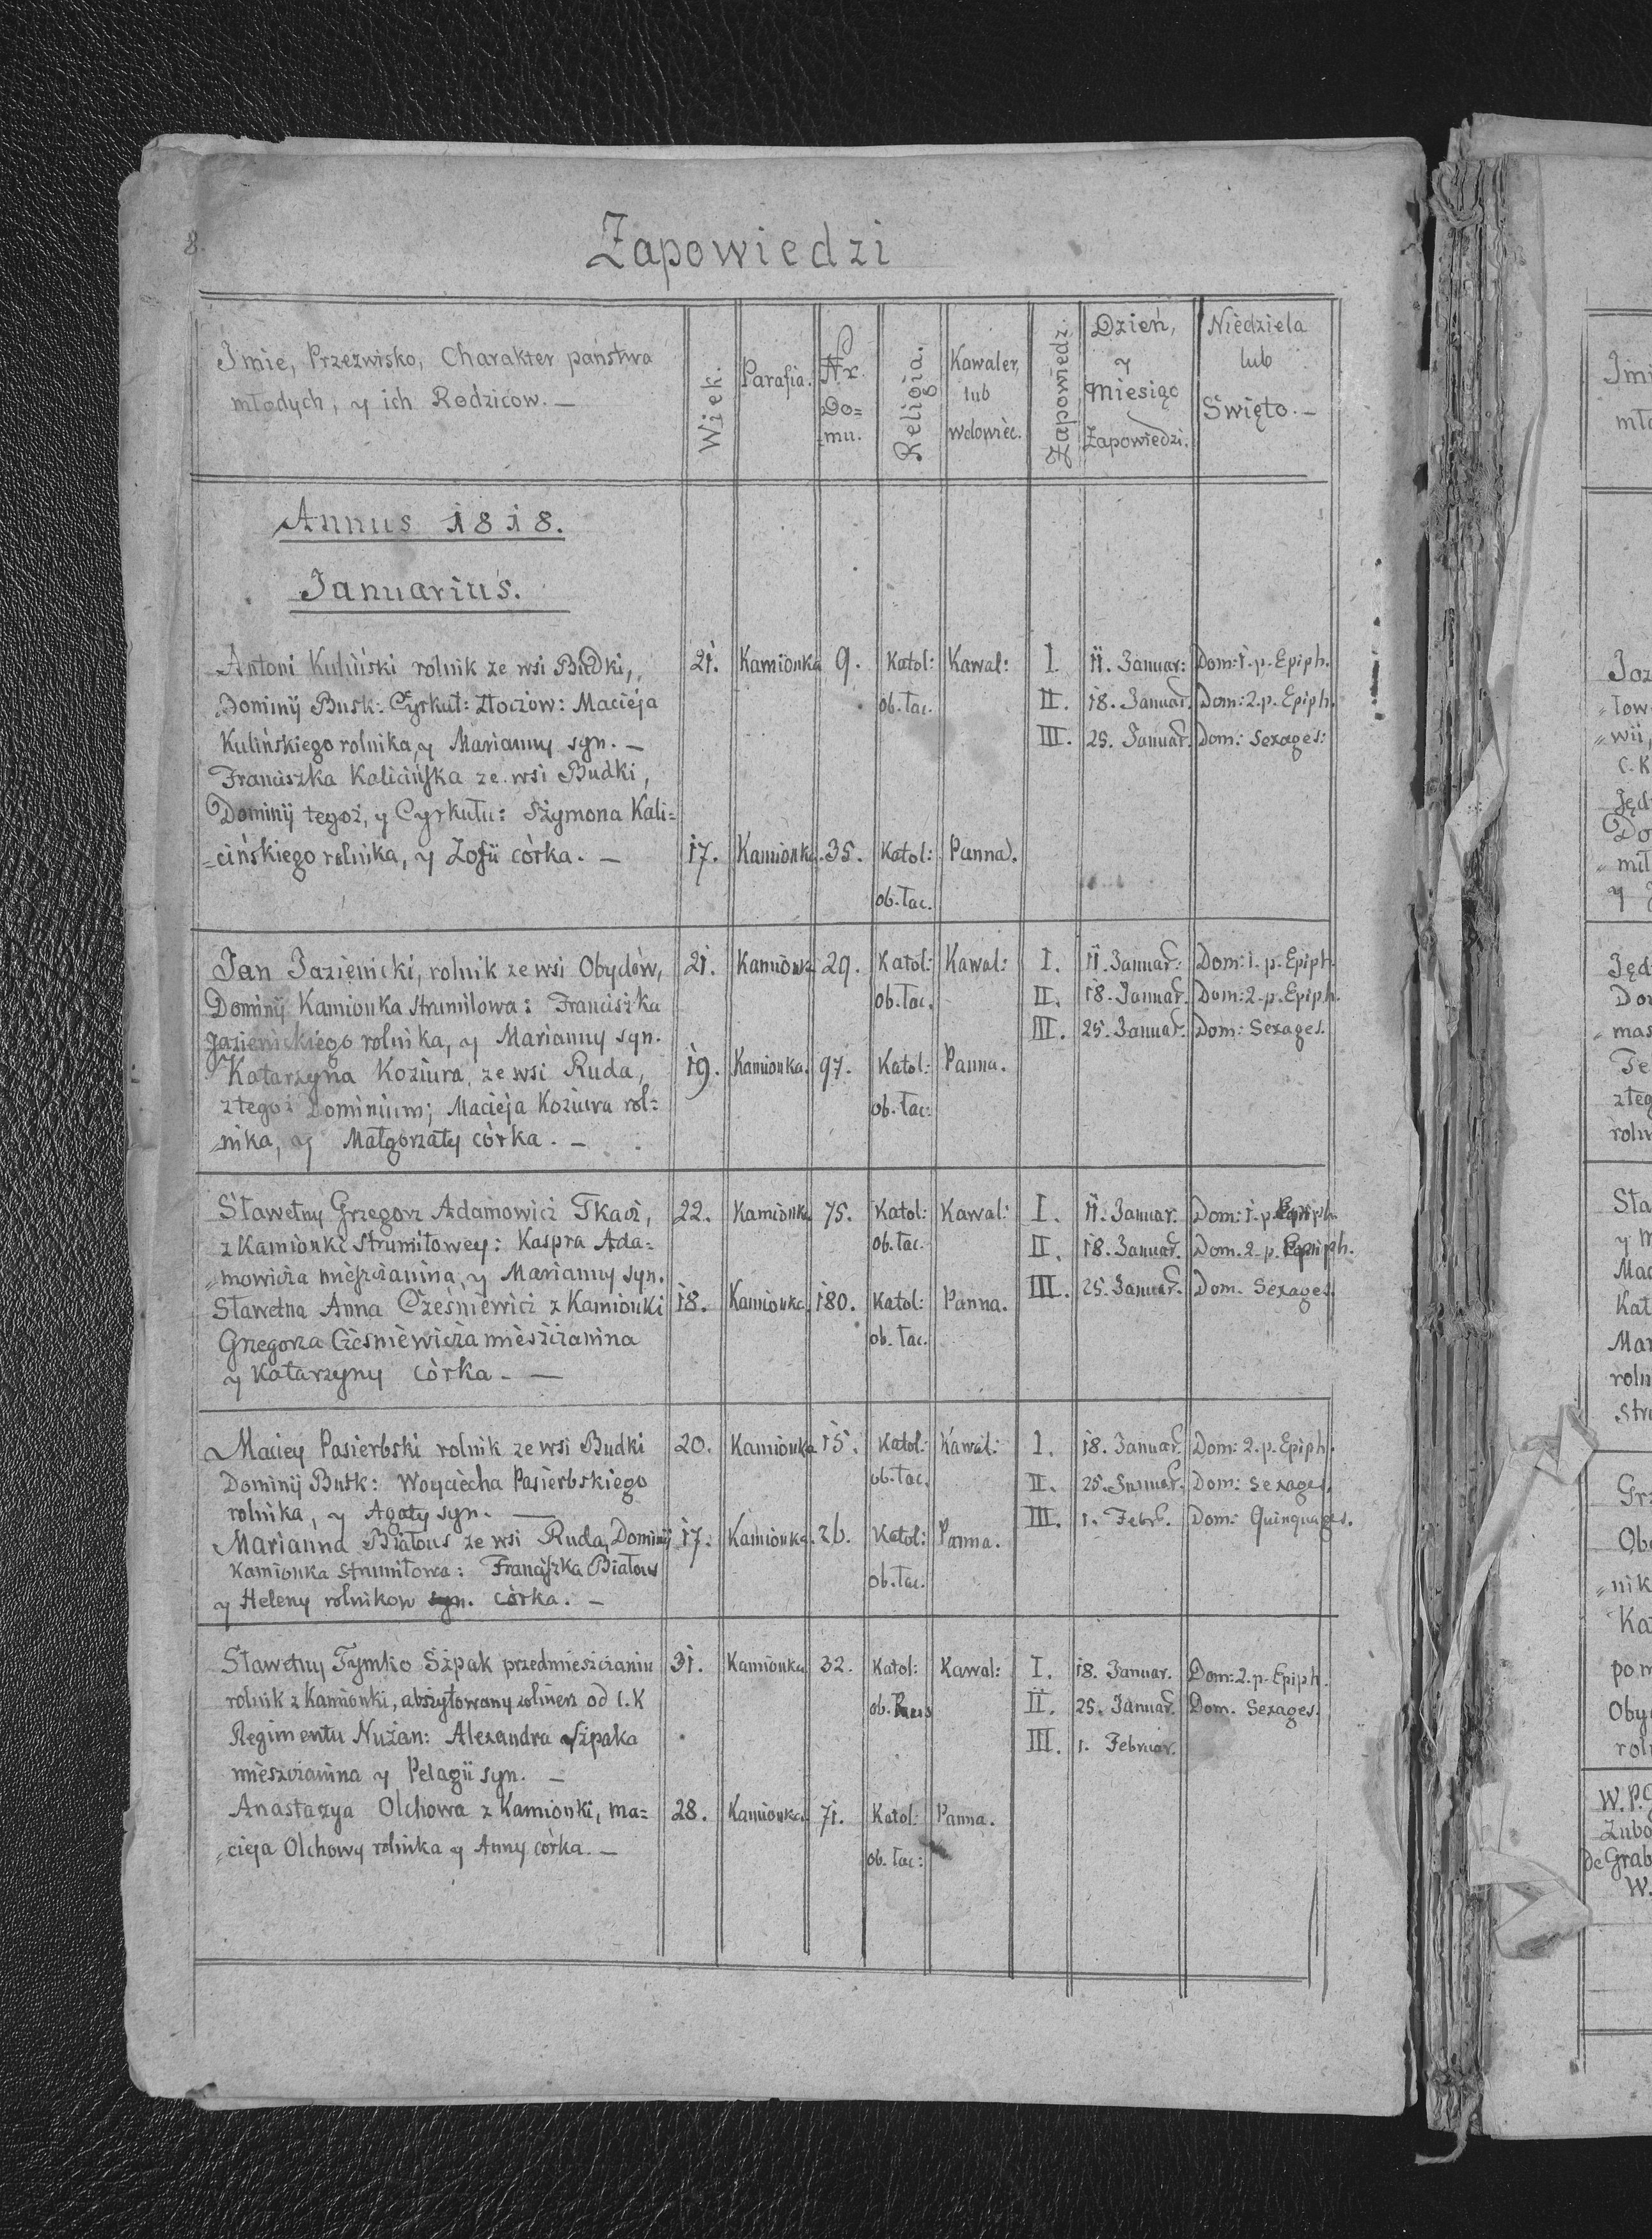 8.
Zapowiedzi
Imie, Przezwisko, Charakter państwa
młodych, y ich Rodziców. —
Wiek.
Parafia.
Nr. Do=
mu.
Religia.
Kawaler,
lub
wdowiec.
Zapowiedz:
Dzień,
y
Miesiąc
Zapowiedzi.
Niedziela
lub
Święto. —
Annus 1818.
Januarius.
Antoni Kuliński rolnik ze wsi Budki, 21. Kamionka 9. Katol: Kawal: I. 11. Januar: Dom: 1. p. Epiph.
Dominij Busk: Cyrkuł: Złoczow: Macieja ob. łac. II. 18. Januar. Dom: 2. p. Epiph.
Kulińskiego rolnika, y Marianny syn. — III. 25. Januar. Dom: Sexages:
Franciszka Kalicińska ze wsi Budki,
Dominij tegoż, y Cyrkułu: Szymona Kali=
=cińskiego rolnika, y Zofii córka. — 17. Kamionka. 35. Katol: Panna.
ob. łac.
Jan Jazienicki, rolnik ze wsi Obydów, 21. Kamionka 29. Katol: Kawal: I. 11. Januar: Dom: 1. p. Epiph.
Dominij Kamionka Strumilowa: Franciszka ob. łac. II. 18. Januar. Dom: 2. p. Epiph.
Jazienickiego rolnika, y Marianny syn. III. 25. Januar. Dom: Sexages.
Katarzyna Koziura, ze wsi Ruda, 19. Kamionka. 97. Katol: Panna.
z tegoż Dominium; Macieja Koziura rol= ob. łac:
=nika, y Małgorzaty córka. —
Sławetny Grzegorz Adamowicz Tkacz, 22. Kamionka 75. Katol: Kawal: I. 11. Januar. Dom: 1. p. Epiph.
z Kamionki Strumiłowey: Kaspra Ada= ob. łac. II. 18. Januar. Dom. 2. p. Epiph.
=mowicza mieszczanina, y Marianny syn. III. 25. Januar. Dom. Sexages.
Sławetna Anna Cześniewicz z Kamionki 18. Kamionka. 180. Katol: Panna.
Grzegorza Cześniewicza mieszczanina ob. łac.
y Katarzyny córka. —
Maciey Pasierbski rolnik ze wsi Budki 20. Kamionka 15. Katol: Kawal: I. 18. Januar. Dom: 2. p. Epiph.
Dominij Busk: Woyciecha Pasierbskiego ob. łac. II. 25. Januar. Dom: Sexages.
rolnika, y Agaty syn. — III. 1. Febr. Dom: Quinquages.
Marianna Białous ze wsi Ruda, Dominij 17. Kamionka. 26. Katol: Panna.
Kamionka Strumiłowa: Franciszka Białous ob. łac.
y Heleny rolnikow syn. córka. —
Sławetny Tymko Szpak przedmieszczanin 31. Kamionka 32. Katol: Kawal: I. 18. Januar. Dom: 2. p. Epiph.
rolnik z Kamionki, abszytowany zolnierz od C. K ob. II. 25. Januar. Dom. Sexages.
Regimentu Nużan: Alexandra Szpaka III. 1. Februar.
mieszczanina y Pelagii syn. —
Anastazya Olchowa z Kamionki, ma= 28. Kamionka. 71. Katol: Panna.
=cieja Olchowy rolnika y Anny córka. — ob. łac: